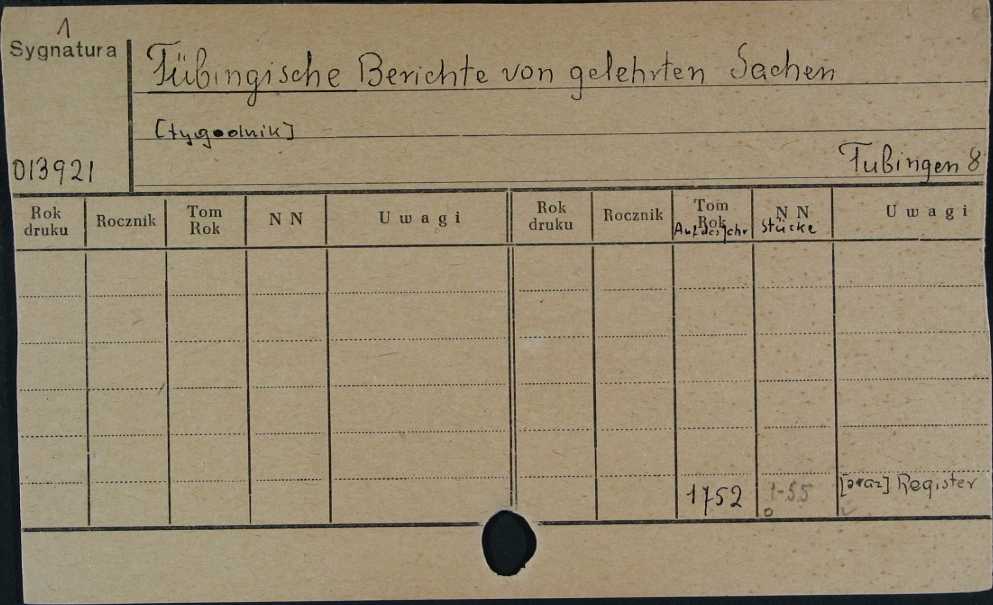 1
Sygnatura
Tübingische Berichte von gelehrten Sachen
[tygodnik]
013921
Tubingen 8
Rok druku Rocznik Tom Rok N N Uwagi Rok druku Rocznik Tom Rok N N Uwagi
Stücke
1752 1-55 [oraz] Register